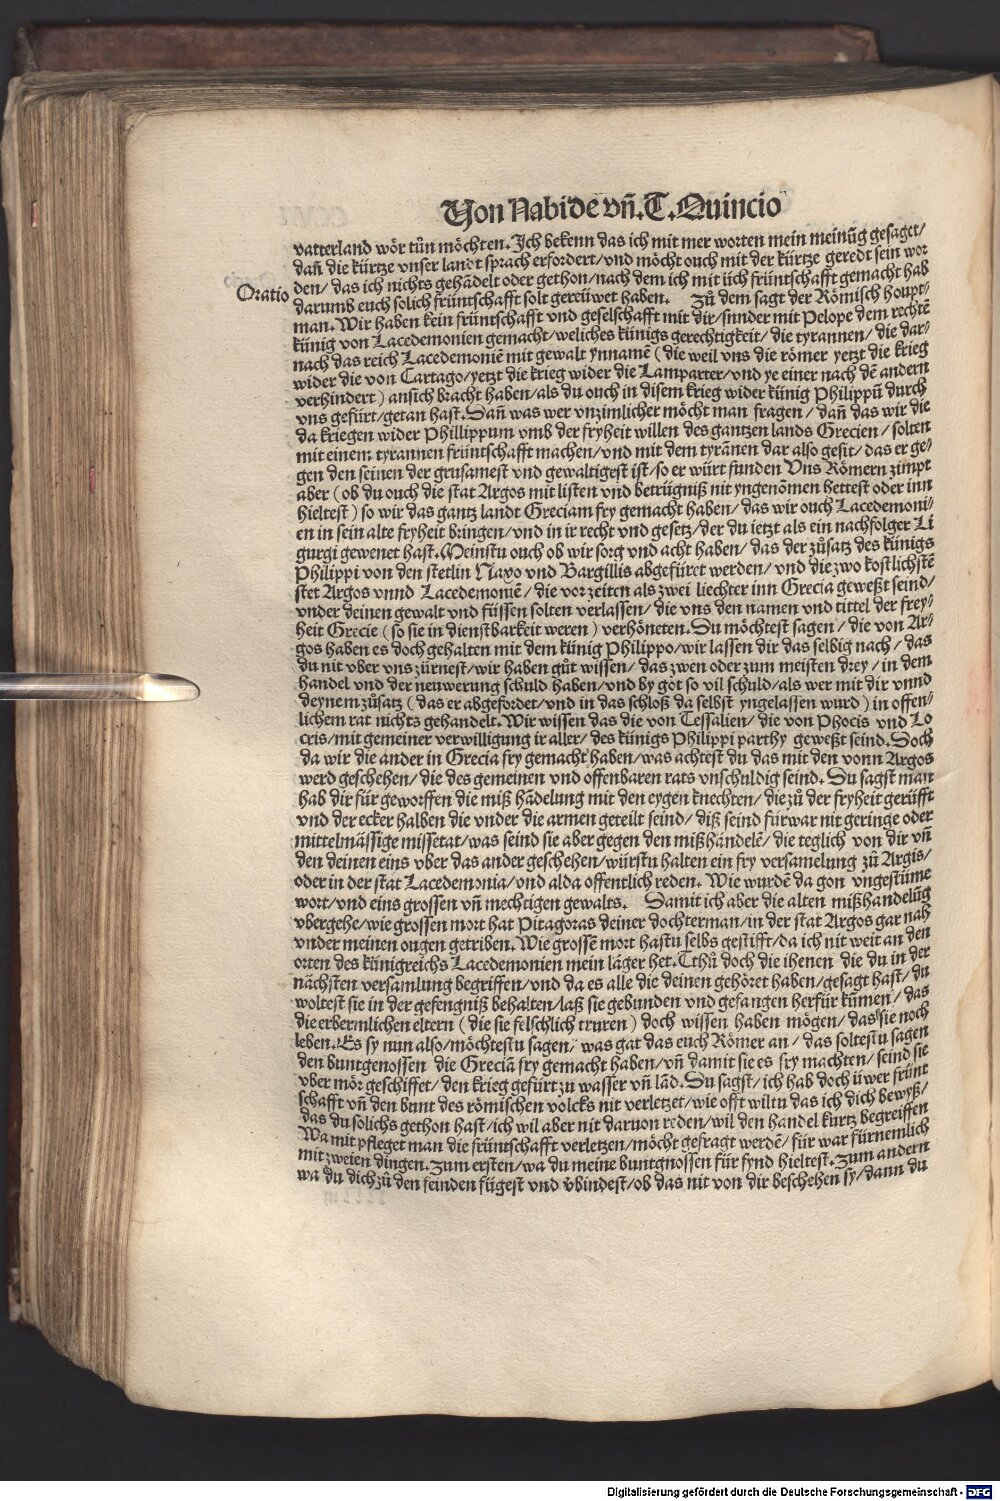 Von Nabide vñ. T. Quincio
vatterland wör tůn möchten. Ich bekenn das ich mit mer worten mein meinūg gesaget/
dañ die kürtze vnser landt sprach erfordert/vnd möcht ouch mit der kürtze geredt sein wor
den/ das ich nichts gehādelt oder gethon/nach dem ich mit üch früntschafft gemacht hab
Oratio
darumb euch solich früntschafft solt gereüwet haben. Zů dem sagt der Römisch houpt⸗
man. Wir haben kein früntschafft vnd geselschafft mit dir/sunder mit Pelope dem rechtē
künig von Lacedemonien gemacht/weliches künigs gerechtigkeit/die tyrannen/ die dar⸗
nach das reich Lacedemoniē mit gewalt ynnamē (die weil vns die römer yetzt die krieg
wider die von Cartago/yetzt die krieg wider die Lamparter/vnd ye einer nach dē andern
verhindert) ansich bracht haben/als du ouch in disem krieg wider künig Philippū durch
vns gefürt/getan hast. Dañ was wer vnzimlicher möcht man fragen/ dañ das wir die
da kriegen wider Phillippum vmb der fryheit willen des gantzen lands Grecien/ solten
mit einem tyrannen früntschafft machen/vnd mit dem tyrānen dar also gesit/das er ge⸗
gen den seinen der grusamest vnd gewaltigest ist/so er würt funden Vns Römern zimpt
aber (ob du ouch die stat Argos mit listen vnd betrügniß nit yngenōmen hettest oder inn
hieltest) so wir das gantz landt Greciam fry gemacht haben/ das wir ouch Lacedemoni⸗
en in sein alte fryheit bringen/vnd in ir recht vnd gesetz/der du ietzt als ein nachfolger Li
gurgi gewenet hast. Meinstu ouch ob wir sorg vnd acht haben/ das der zůsatz des künigs
Philippi von den stetlin Nayo vnd Bargillis abgefüret werden/ vnd die zwo kostlichstē
stet Argos vnnd Lacedemoniē/ die vor zeiten als zwei liechter inn Grecia geweßt seind/
vnder deinen gewalt vnd füssen solten verlassen/ die vns den namen vnd tittel der frey⸗
heit Grecie (so sie in dienstbarkeit weren) verhöneten. Du möchtest sagen/ die von Ar⸗
gos haben es doch gehalten mit dem künig Philippo/wir lassen dir das selbig nach/ das
du nit vber vns zürnest/wir haben gůt wissen/ das zwen oder zum meisten drey/ in dem
handel vnd der neuwerung schuld haben/vnd by got so vil schuld/als wer mit dir vnnd
deynem zůsatz (das er abgefordet/vnd in das schloß da selbst yngelassen wurd) in offen⸗
lichem rat nichts gehandelt. Wir wissen das die von Tessalien/ die von Phocis vnd Lo
cris/mit gemeiner verwilligung ir aller/ des künigs Philippi parthy geweßt seind. Doch
da wir die ander in Grecia fry gemacht haben/was achtest du das mit den vonn Argos
werd geschehen/ die des gemeinen vnd offenbaren rats vnschuldig seind. Du sagst man
hab dir für geworffen die miß hādelung mit den eygen knechten/ die zů der fryheit gerüfft
vnd der ecker halben die vnder die armen geteilt seind/ diß seind fürwar nit geringe oder
mittelmässige missetat/was seind sie aber gegen den mißhandelē/ die teglich von dir vñ
den deinen eins vber das ander geschehen/würstu halten ein fry versamelung zů Argis/
oder in der stat Lacedemonia/vnd alda offentlich reden. Wie wurdē da gon vngestüme
wort/vnd eins grossen vñ mechtigen gewalts. Damit ich aber die alten mißhandelūg
vbergehe/wie grossen mort hat Pitagoras deiner dochterman/in der stat Argos gar nah
vnder meinen ougen getriben. Wie grossē mort hastu selbs gestifft/da ich nit weit an den
orten des künigreichs Lacedemonien mein läger het. Tthů doch die ihenen die du in der
nächsten versamlung begriffen/vnd da es alle die deinen gehöret haben/gesagt hast/ du
woltest sie in der gefengniß behalten/laß sie gebunden vnd gefangen herfür kūmen/ das
die erbermlichen eltern (die sie felschlich truren) doch wissen haben mögen/ das sie noch
leben. Es sy nun also/möchtestu sagen/ was gat das euch Römer an/ das soltestu sagen
den buntgenossen die Greciā fry gemacht haben/vñ damit sie es fry machten/ seind sie
vber mör geschiffet/ den krieg gefürt zu wasser vñ lād. Du sagst/ich hab doch üwer frünt
schafft vñ den bunt des römischen volcks nit verletzet/wie offt wiltu das ich dich bewyß/
das du solichs gethon hast/ich wil aber nit daruon reden/wil den handel kurtz begreiffen
Wa mit pfleget man die früntschafft verletzen/möcht gefragt werdē/ für war fürnemlich
mit zweien dingen. Zum ersten/wa du meine buntgnossen für fynd hieltest. Zum andern
wa du dich zů den feinden fügest vnd v̈bindest/ob das nit von dir beschehen sy/dann du
Digitalisierung gefördert durch die Deutsche Forschungsgemeinschaft - DFG